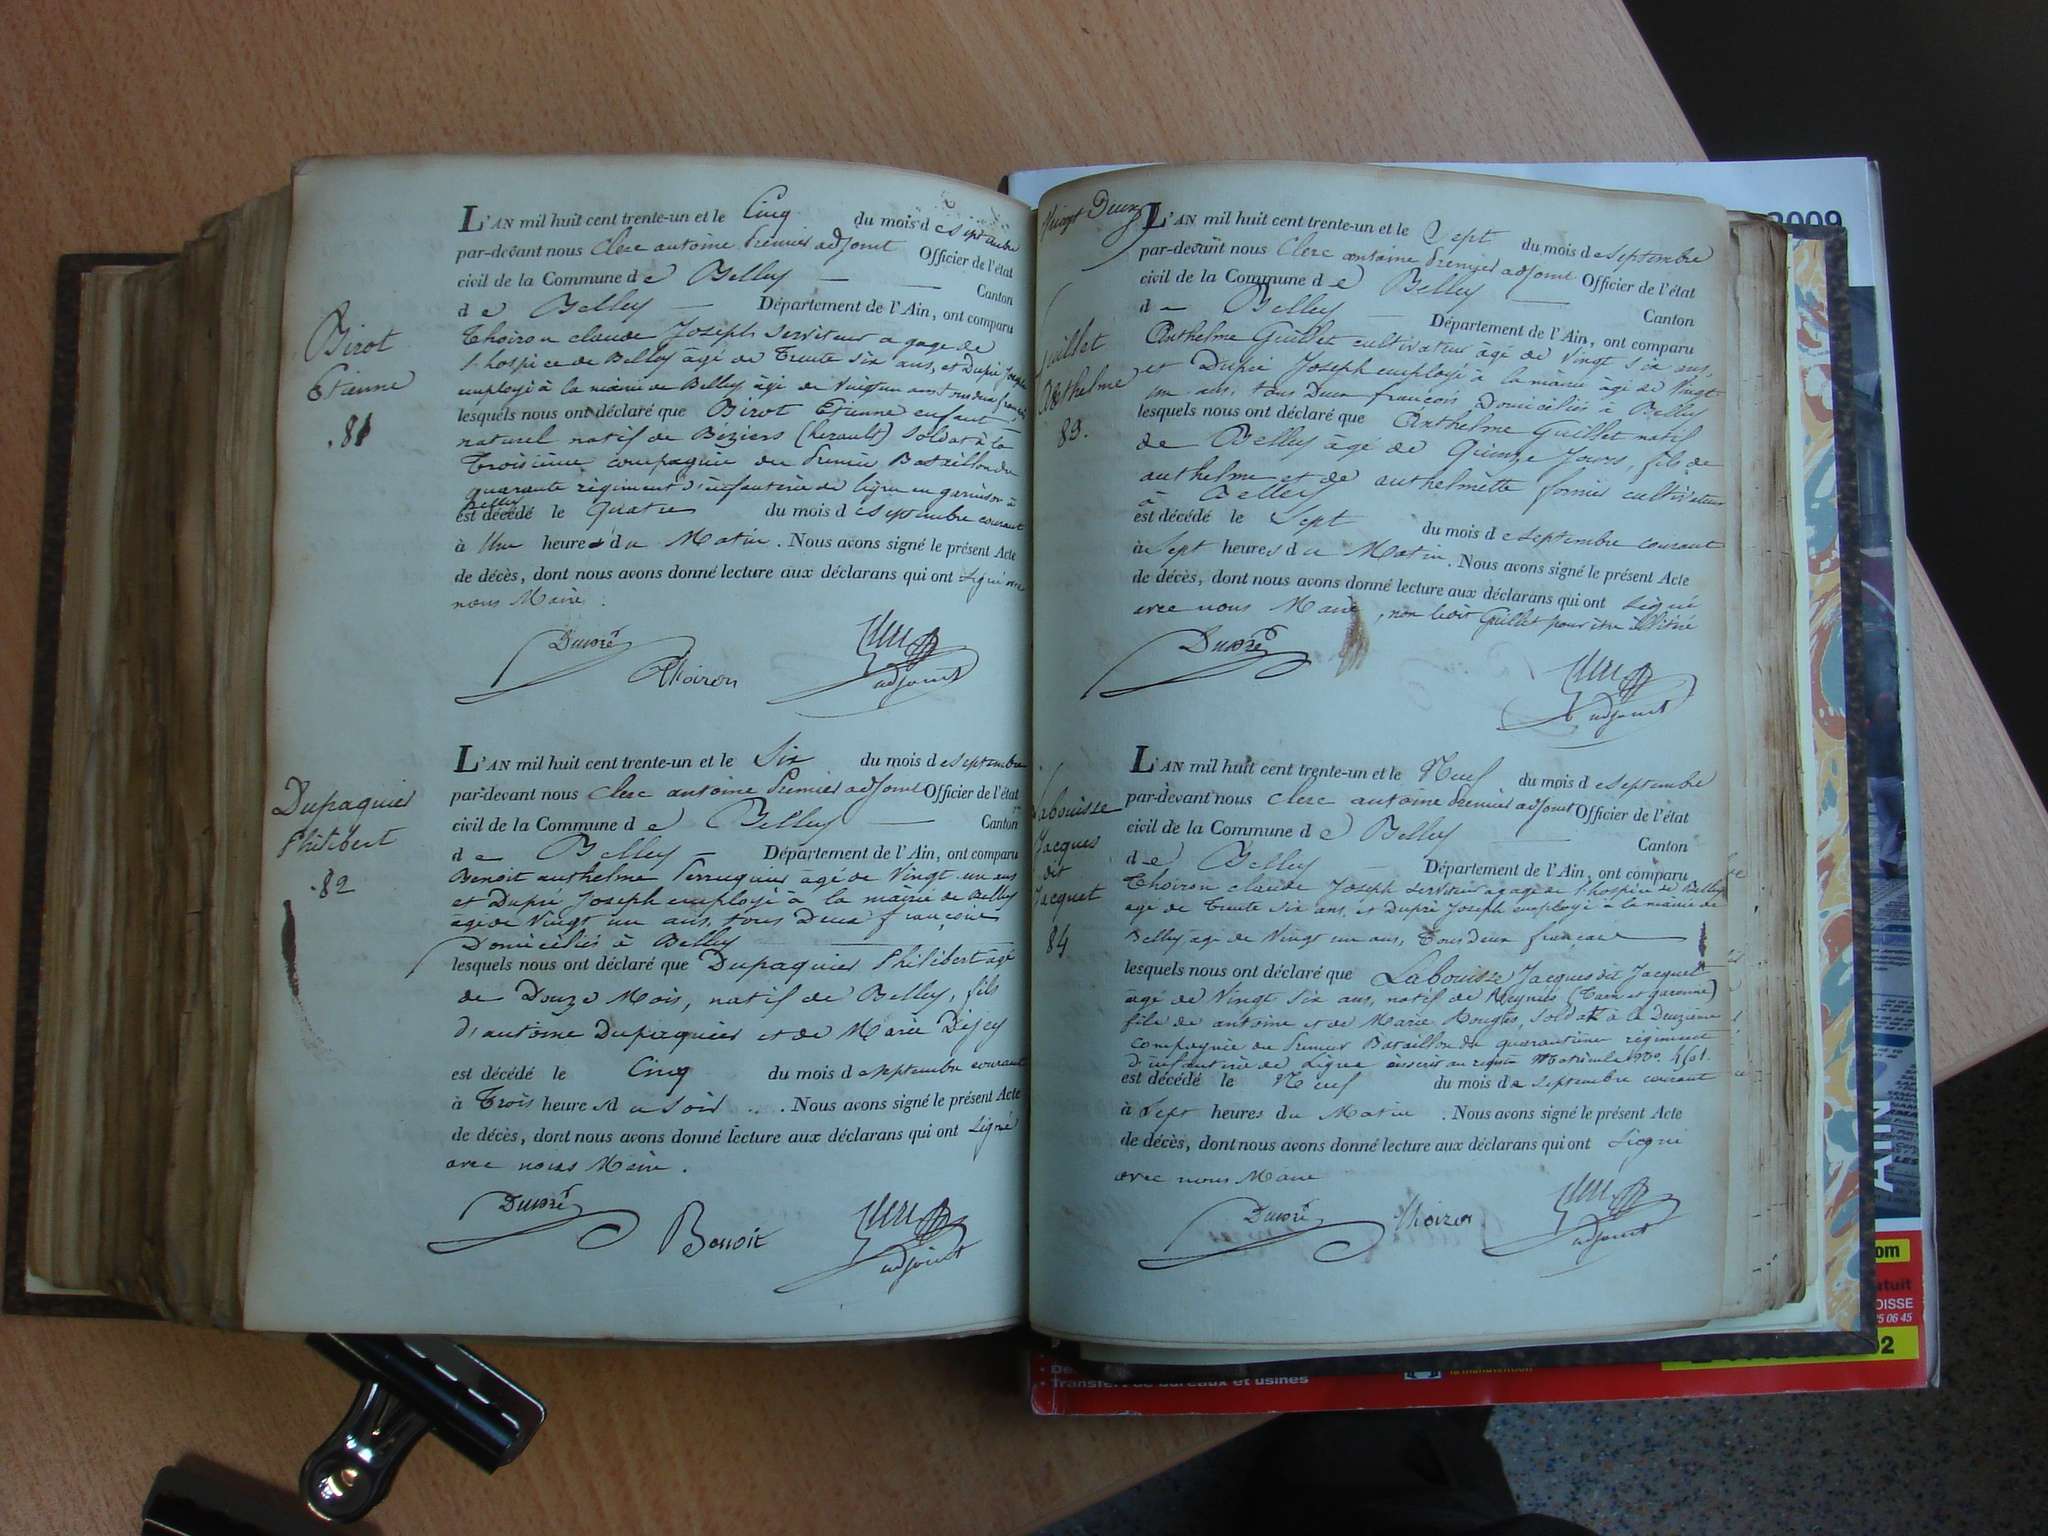 Birot
Etienne
.81
L'AN mil huit cent trente-un et le Cinq du mois de septembre
par-devant nous Clerc antoine Premier adjoint Officier de l'état
civil de la Commune de Belley Canton
de Belley Département de l'Ain, ont comparu
Thoiron claude Joseph Serviteur a gage de
l'hospice de Belley âgé de Trente Six ans, et Dupré Joseph
employé à la mairie de Belley âgé de Vingt un ans tous deux français
lesquels nous ont déclaré que Birot Etienne enfant
naturel natif de Béziers (herault) Soldat à la
Troisième compagnie du Premier Bataillon du
quarante régiment d'infanterie de ligne en garnison à
Belley
est décédé le quatre du mois de septembre courant
à Une heure du Matin. Nous avons signé le présent Acte
de décès, dont nous avons donné lecture aux déclarans qui ont signé avec
nous Maire.
Dupré
Thoiron
Clerc
adjoint
Dupaquier
Philibert
.82
L'AN mil huit cent trente-un et le Six du mois de septembre
par-devant nous Clerc antoine Premier adjoint Officier de l'état
civil de la Commune de Belley Canton
de Belley Département de l'Ain, ont comparu
Benoit anthelme Perruquier âgé de Vingt un ans
et Dupré Joseph employé à la mairie de Belley
âgé de Vingt un ans, tous Deux français
Domiciliés à Belley
lesquels nous ont déclaré que Dupaquier Philibert âgé
de Douze Mois, natif de Belley, fils
d'antoine Dupaquier et de Marie Déjey
est décédé le Cinq du mois de septembre courant
à Trois heures du Soir. Nous avons signé le présent Acte
de décès, dont nous avons donné lecture aux déclarans qui ont signé
avec nous Maire.
Dupré
Benoit
Clerc
adjoint
Vingt Deux
Guillet
Anthelme
83.
L'AN mil huit cent trente-un et le Sept du mois de septembre
par-devant nous Clerc antoine Premier adjoint Officier de l'état
civil de la Commune de Belley Canton
de Belley Département de l'Ain, ont comparu
Anthelme Guillet cultivateur âgé de Vingt Six ans,
et Dupré Joseph employé à la mairie âgé de Vingt
un ans, tous Deux françois Domiciliés à Belley
lesquels nous ont déclaré que Anthelme Guillet natif
de Belley âgé de Quinze Jours, fils de
anthelme et de anthelmette fornier cultivateur
à Belley
est décédé le Sept du mois de septembre courant
à Sept heures du Matin. Nous avons signé le présent Acte
de décès, dont nous avons donné lecture aux déclarans qui ont signé
avec nous Maire, non ledit Guillet pour être illitéré
Dupré
Clerc
adjoint
Labouisse
Jacques
dit
Jacquet
84
L'AN mil huit cent trente-un et le Neuf du mois de septembre
par-devant nous Clerc antoine Premier adjoint Officier de l'état
civil de la Commune de Belley Canton
de Belley Département de l'Ain, ont comparu
Thoiron claude Joseph serviteur a gage de l'hospice de Belley
agé de Trente Six ans, et Dupré Joseph employé à la mairie de
Belley âgé de Vingt un ans, Tous Deux français
lesquels nous ont déclaré que Labouisse Jacques dit Jacquet
âgé de Vingt Six ans, natif de (Tarn et garonne)
fils de antoine et de Marie Bougès, soldat à la deuxième
compagnie du Premier Bataillon du quarantième régiment
d'infanterie de Ligne inscrit au registre Matricule
est décédé le Neuf du mois de septembre courant
à Sept heures du Matin. Nous avons signé le présent Acte
de décès, dont nous avons donné lecture aux déclarans qui ont Signé
avec nous Maire
Dupré
Thoiron
Clerc
adjoint
2009
AIN
om
OISSE
5 06 45
• Transfert de bureaux et usines